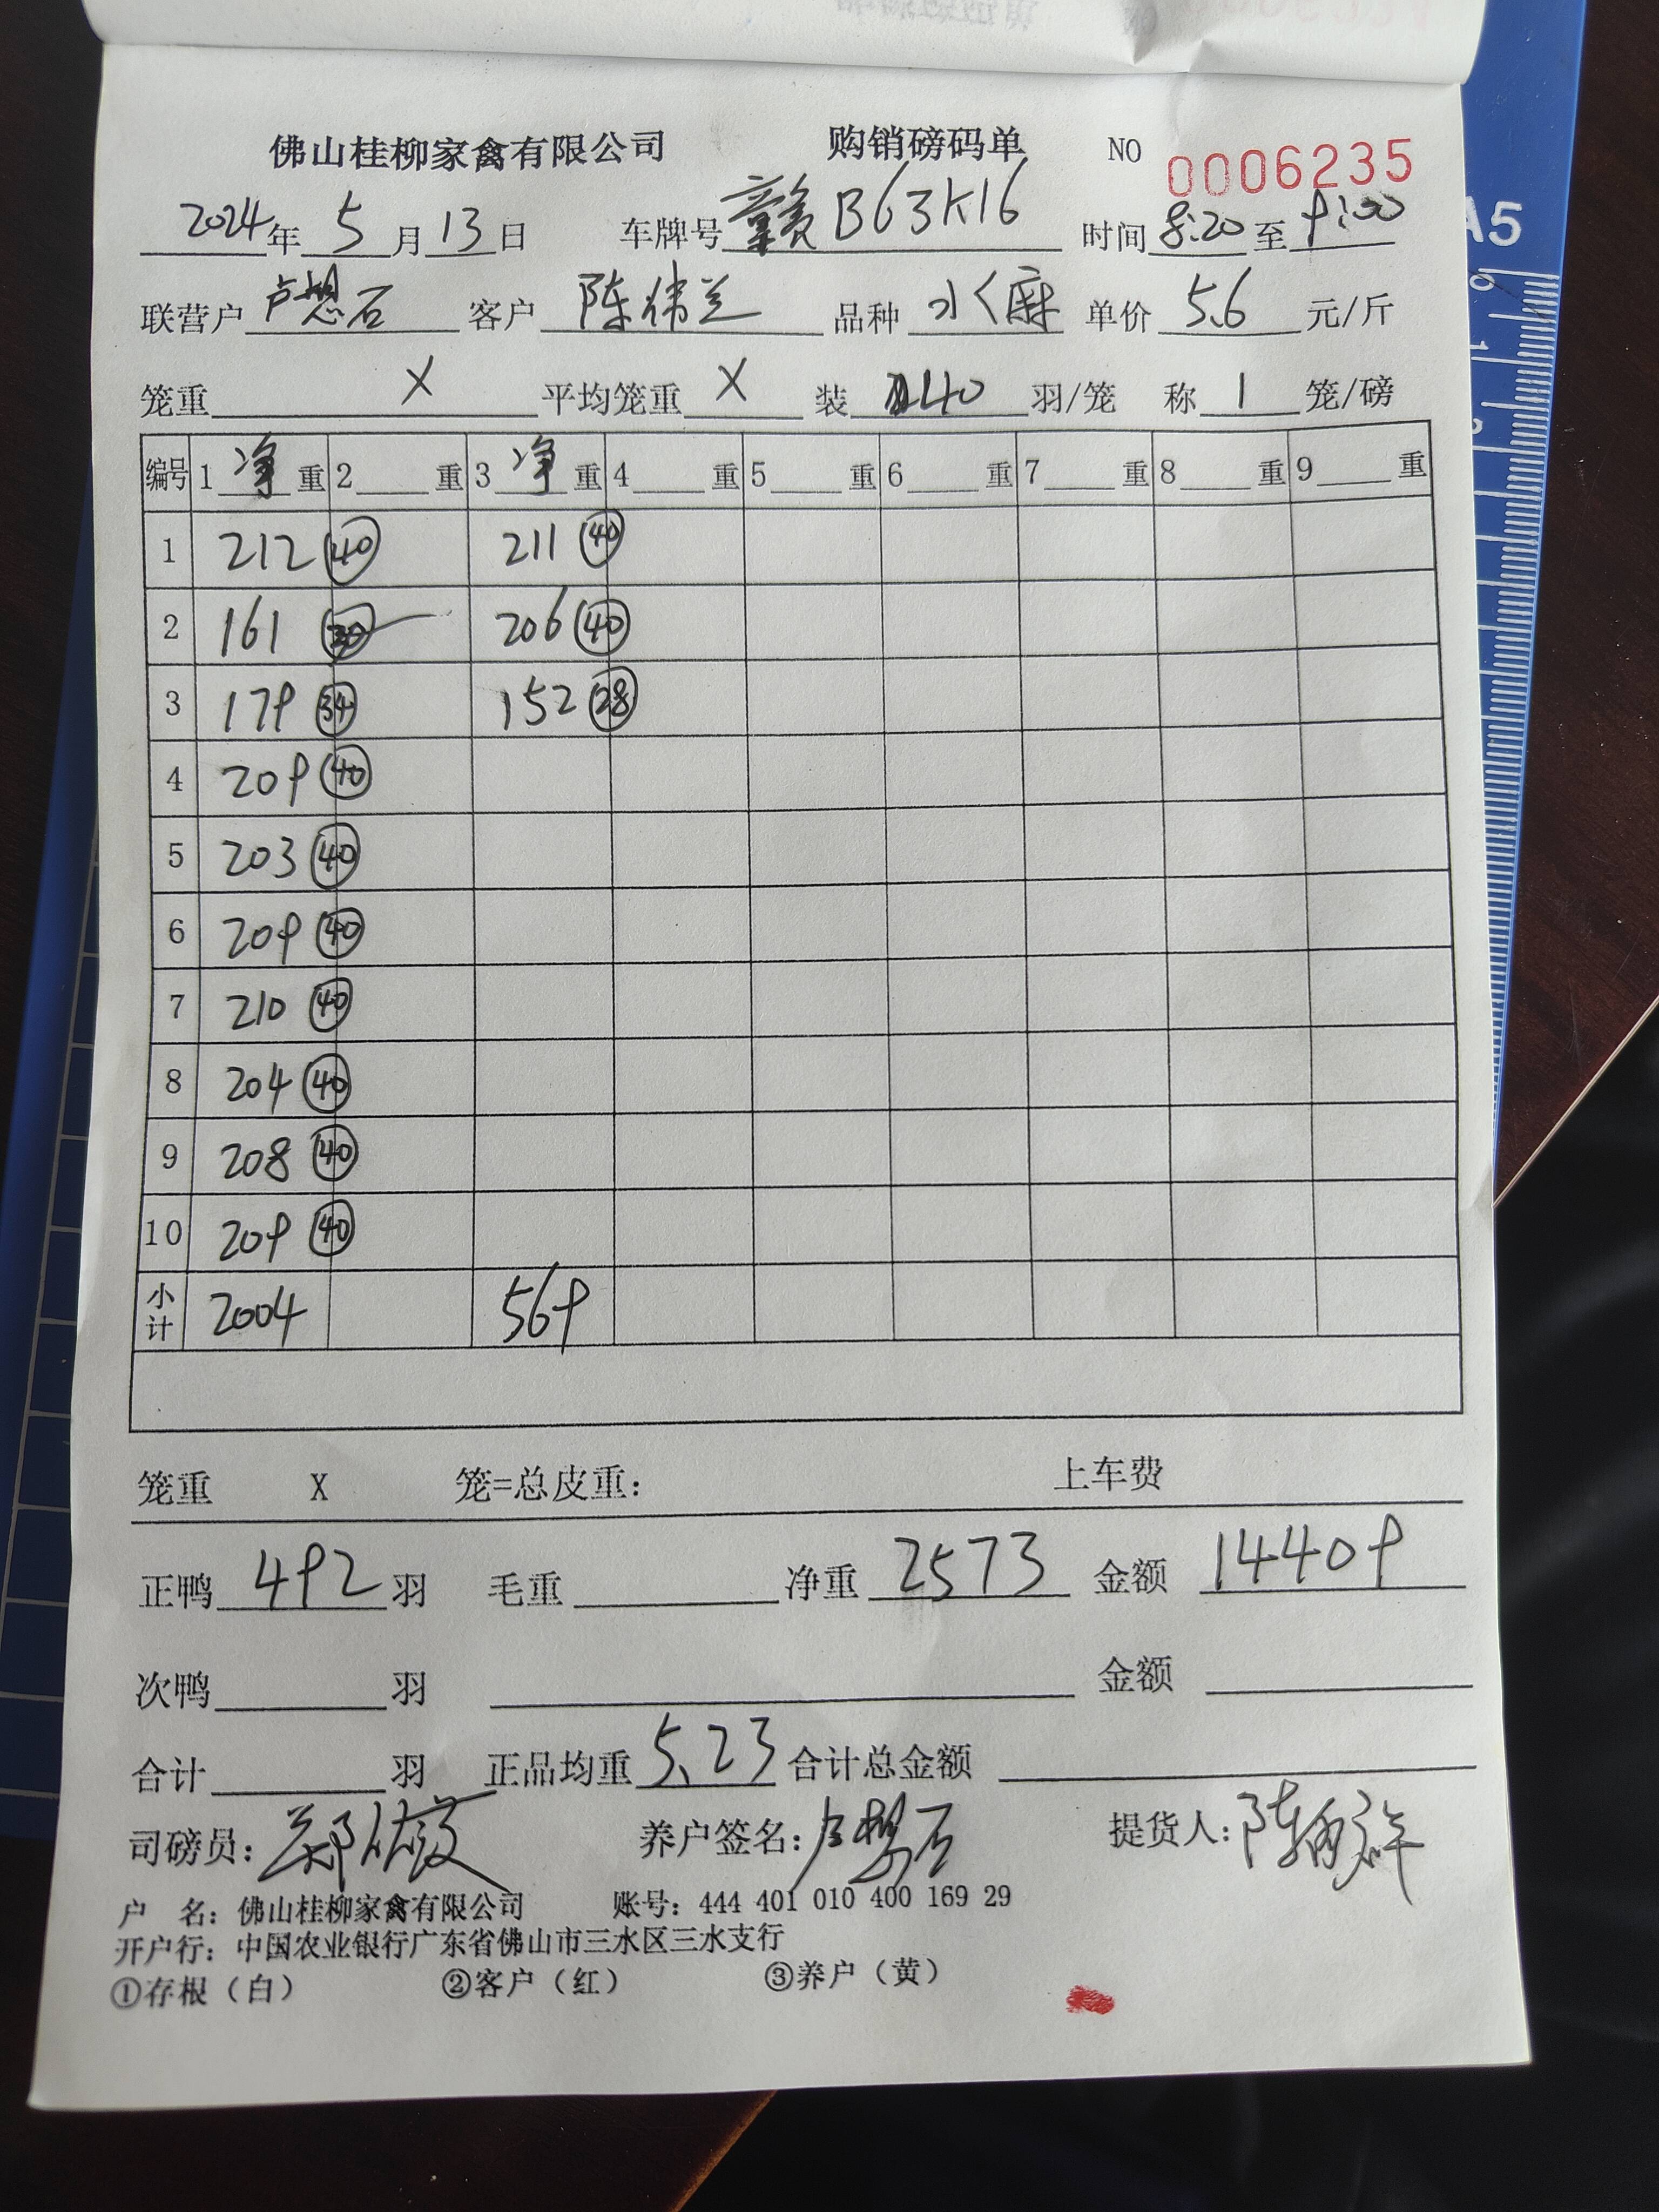 佛山桂柳家禽有限公司 购销磅码单 NO 0006235
2024年5月13日 车牌号 赣B63K16 时间 8:20 至 9:00
联营户 卢想石 客户 陈伟兰 品种 水麻 单价 5.6 元/斤
笼重 X 平均笼重 X 装 40 羽/笼 称 1 笼/磅
编号 1 净 重 2 重 3 净 重 4 重 5 重 6 重 7 重 8 重 9 重
1 212 40 211 40
2 161 30 206 40
3 179 34 152 28
4 209 40
5 203 40
6 209 40
7 210 40
8 204 40
9 208 40
10 209 40
小计 2004 569
笼重 X 笼=总皮重: 上车费
正鸭 492 羽 毛重 净重 2573 金额 14409
次鸭 羽 金额
合计 羽 正品均重 5.23 合计总金额
司磅员: 养户签名: 提货人:
户 名: 佛山桂柳家禽有限公司 账号: 444 401 010 400 169 29
开户行: 中国农业银行广东省佛山市三水区三水支行
①存根（白） ②客户（红） ③养户（黄）
A5